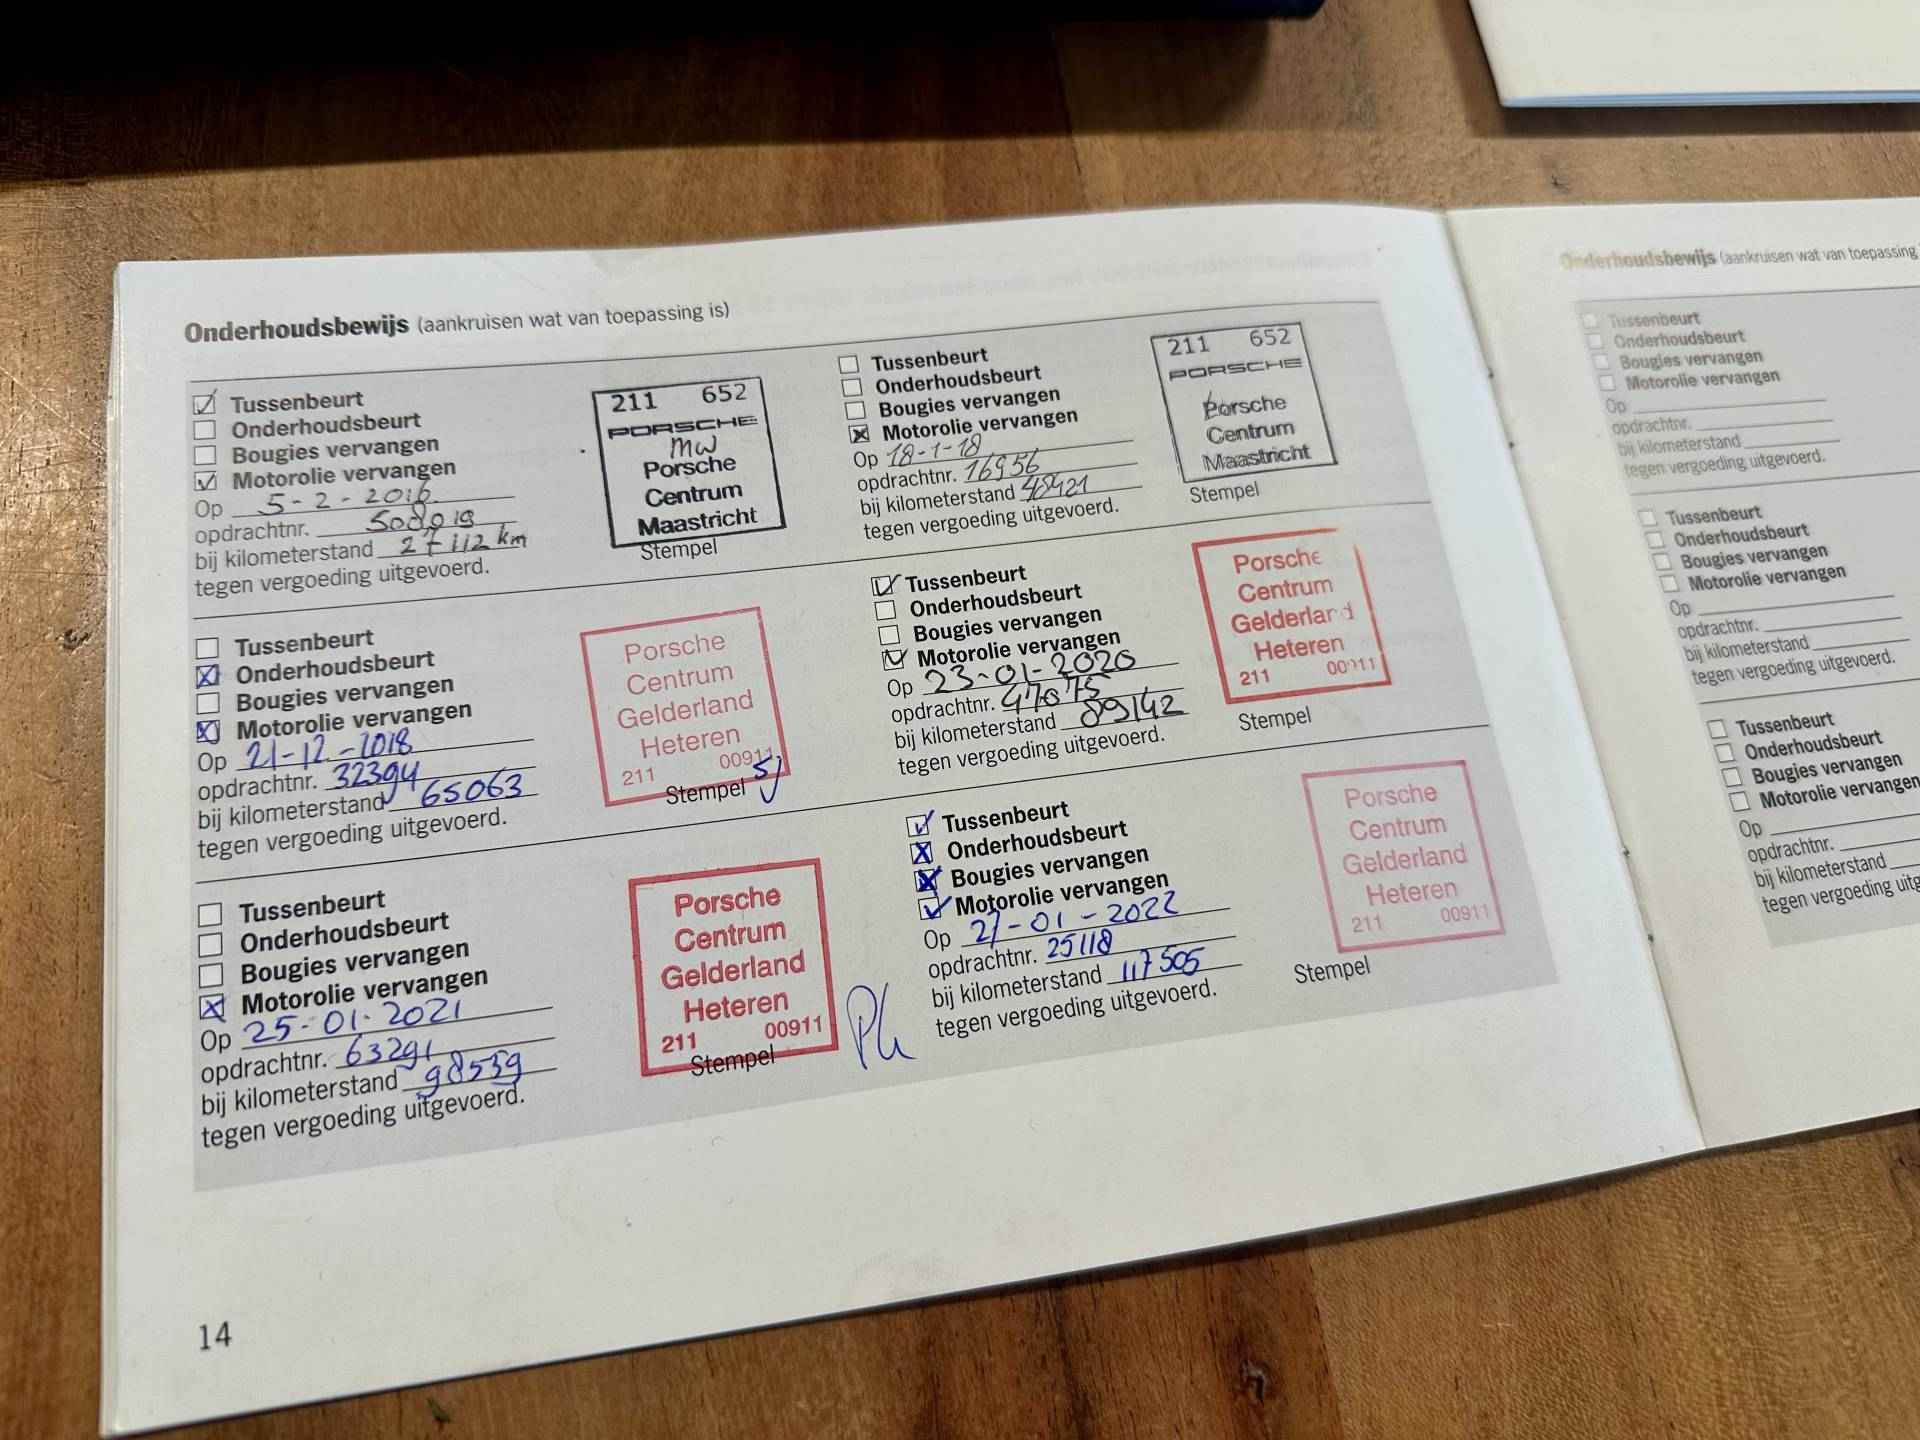 Onderhoudsbewijs (aankruisen wat van toepassing is)
Tussenbeurt
Onderhoudsbeurt
Bougies vervangen
Motorolie vervangen
Op 5-2-2016
opdrachtnr. 508019
bij kilometerstand 27112 km
tegen vergoeding uitgevoerd.
211 652
PORSCHE
MW
Porsche
Centrum
Maastricht
Stempel
Tussenbeurt
Onderhoudsbeurt
Bougies vervangen
Motorolie vervangen
Op 18-1-18
opdrachtnr. 16956
bij kilometerstand 48421
tegen vergoeding uitgevoerd.
211 652
PORSCHE
Porsche
Centrum
Maastricht
Stempel
Tussenbeurt
Onderhoudsbeurt
Bougies vervangen
Motorolie vervangen
Op 21-12-2018
opdrachtnr. 32394
bij kilometerstand 65063
tegen vergoeding uitgevoerd.
Porsche
Centrum
Gelderland
Heteren
211 00911
Stempel
Tussenbeurt
Onderhoudsbeurt
Bougies vervangen
Motorolie vervangen
Op 23-01-2020
opdrachtnr. 47075
bij kilometerstand 89142
tegen vergoeding uitgevoerd.
Porsche
Centrum
Gelderland
Heteren
211 00911
Stempel
Tussenbeurt
Onderhoudsbeurt
Bougies vervangen
Motorolie vervangen
Op 25-01-2021
opdrachtnr. 63291
bij kilometerstand 98559
tegen vergoeding uitgevoerd.
Porsche
Centrum
Gelderland
Heteren
211 00911
Stempel
Tussenbeurt
Onderhoudsbeurt
Bougies vervangen
Motorolie vervangen
Op 27-01-2022
opdrachtnr. 25118
bij kilometerstand 117505
tegen vergoeding uitgevoerd.
Porsche
Centrum
Gelderland
Heteren
211 00911
Stempel
14
Onderhoudsbewijs (aankruisen wat van toepassing
Tussenbeurt
Onderhoudsbeurt
Bougies vervangen
Motorolie vervangen
Op
opdrachtnr.
bij kilometerstand
tegen vergoeding uitgevoerd.
Tussenbeurt
Onderhoudsbeurt
Bougies vervangen
Motorolie vervangen
Op
opdrachtnr.
bij kilometerstand
tegen vergoeding uitgevoerd.
Tussenbeurt
Onderhoudsbeurt
Bougies vervangen
Motorolie vervangen
Op
opdrachtnr.
bij kilometerstand
tegen vergoeding uitg